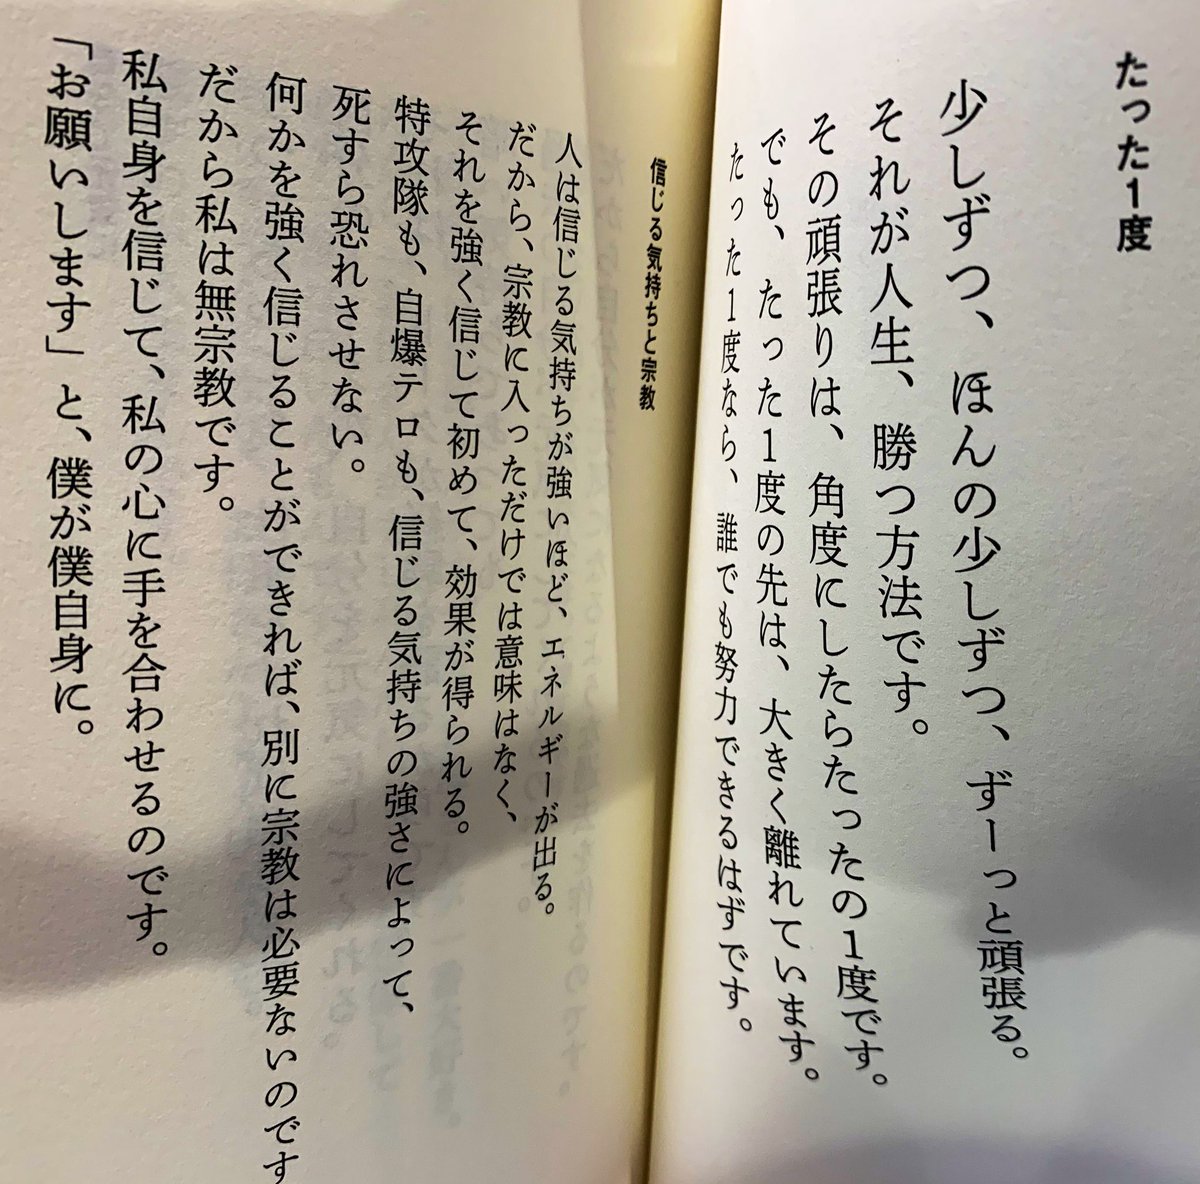 たった1度
少しずつ、ほんの少しずつ、ずーっと頑張る。
それが人生、勝つ方法です。
その頑張りは、角度にしたらたったの1度です。
でも、たった1度の先は、大きく離れています。
たった1度なら、誰でも努力できるはずです。
信じる気持ちと宗教
人は信じる気持ちが強いほど、エネルギーが出る。
だから、宗教に入っただけでは意味はなく、
それを強く信じて初めて、効果が得られる。
特攻隊も、自爆テロも、信じる気持ちの強さによって、
死すら恐れさせない。
何かを強く信じることができれば、別に宗教は必要ないのです
だから私は無宗教です。
私自身を信じて、私の心に手を合わせるのです。
「お願いします」と、僕が僕自身に。